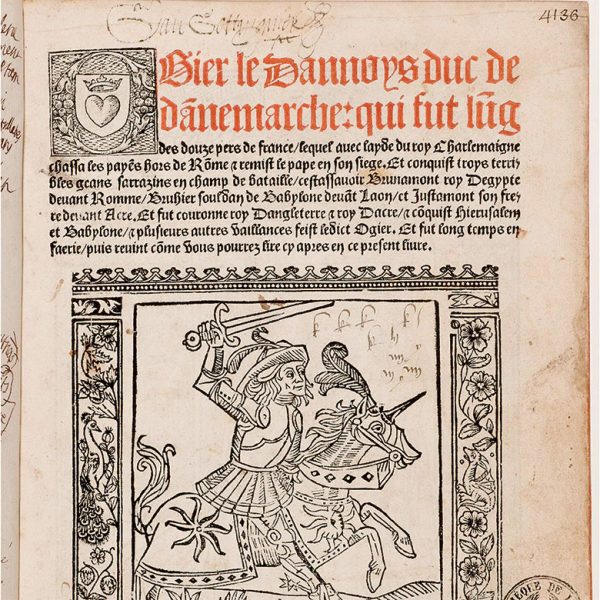 4136
Ogier le Dannoys duc de
dãnemarche: qui fut lũg
des douze pers de france/lequel avec layde du roy Charlemaigne
chassa les payẽs hors de Rõme ⁊ remist le pape en son siege. Et conquist troys terri
bles geans sarrazins en champ de bataille/cestassavoir Brunamont roy Degypte
devant Romme/Bruhier souldan de Babylone devãt Laon/et Justamont son fre
re devant Acre. Et fut couronne roy Dangleterre ⁊ roy Dacre/⁊ cõquist Hierusalem
et Babylone/⁊ plusieurs autres vaillances feist ledict Ogier. Et fut long temps en
faerie/puis revint cõme vous pourrez lire cy apres en ce present livre.